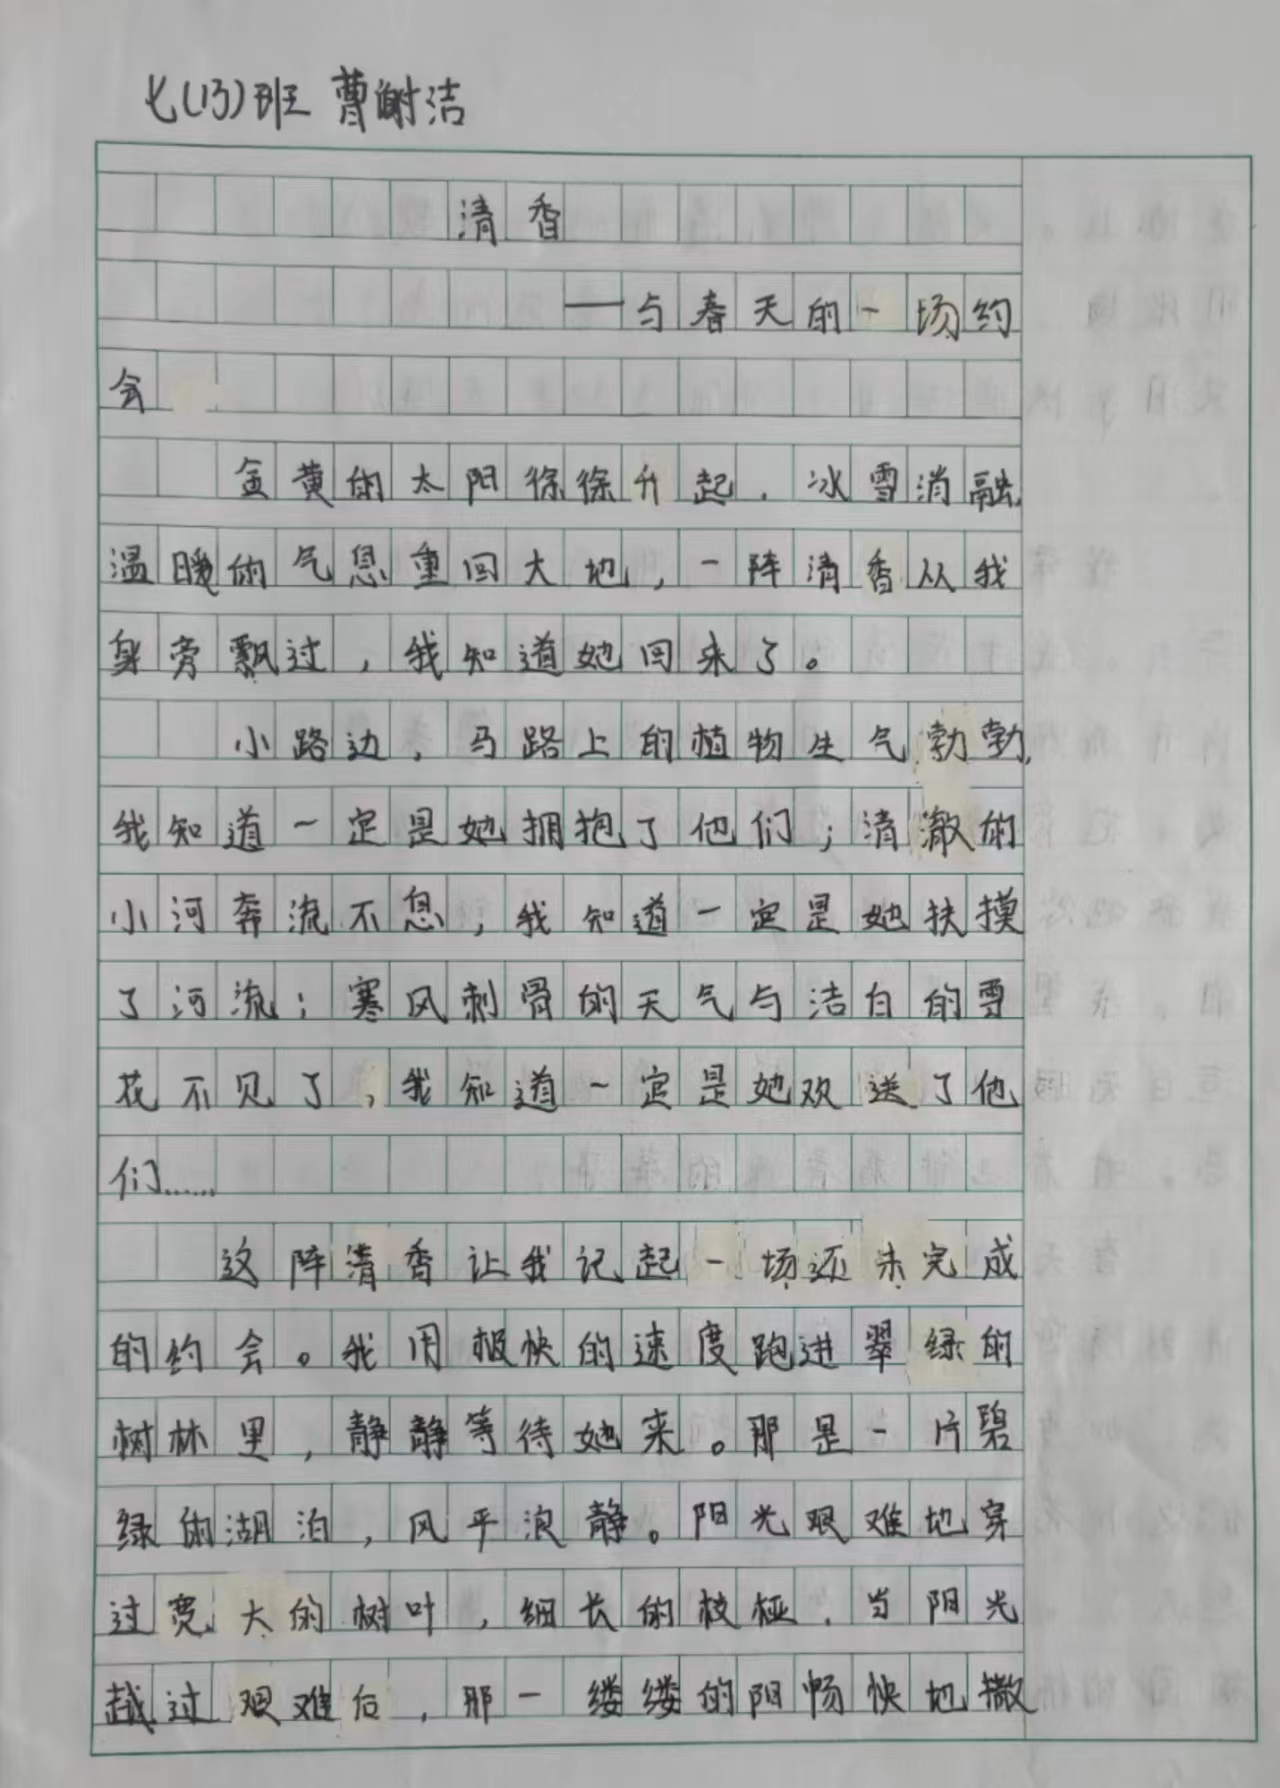 七(13)班 曹谢洁
清香
——与春天的一场约
会
金黄的太阳徐徐升起，冰雪消融，
温暖的气息重回大地，一阵清香从我
身旁飘过，我知道她回来了。
小路边，马路上的植物生气勃勃，
我知道一定是她拥抱了他们；清澈的
小河奔流不息，我知道一定是她扶摸
了河流；寒风刺骨的天气与洁白的雪
花不见了，我知道一定是她欢送了他
们……
这阵清香让我记起一场还未完成
的约会。我用极快的速度跑进翠绿的
树林里，静静等待她来。那是一片碧
绿的湖泊，风平浪静。阳光艰难地穿
过宽大的树叶，细长的枝桠，当阳光
越过艰难后，那一缕缕的阳畅快地撒